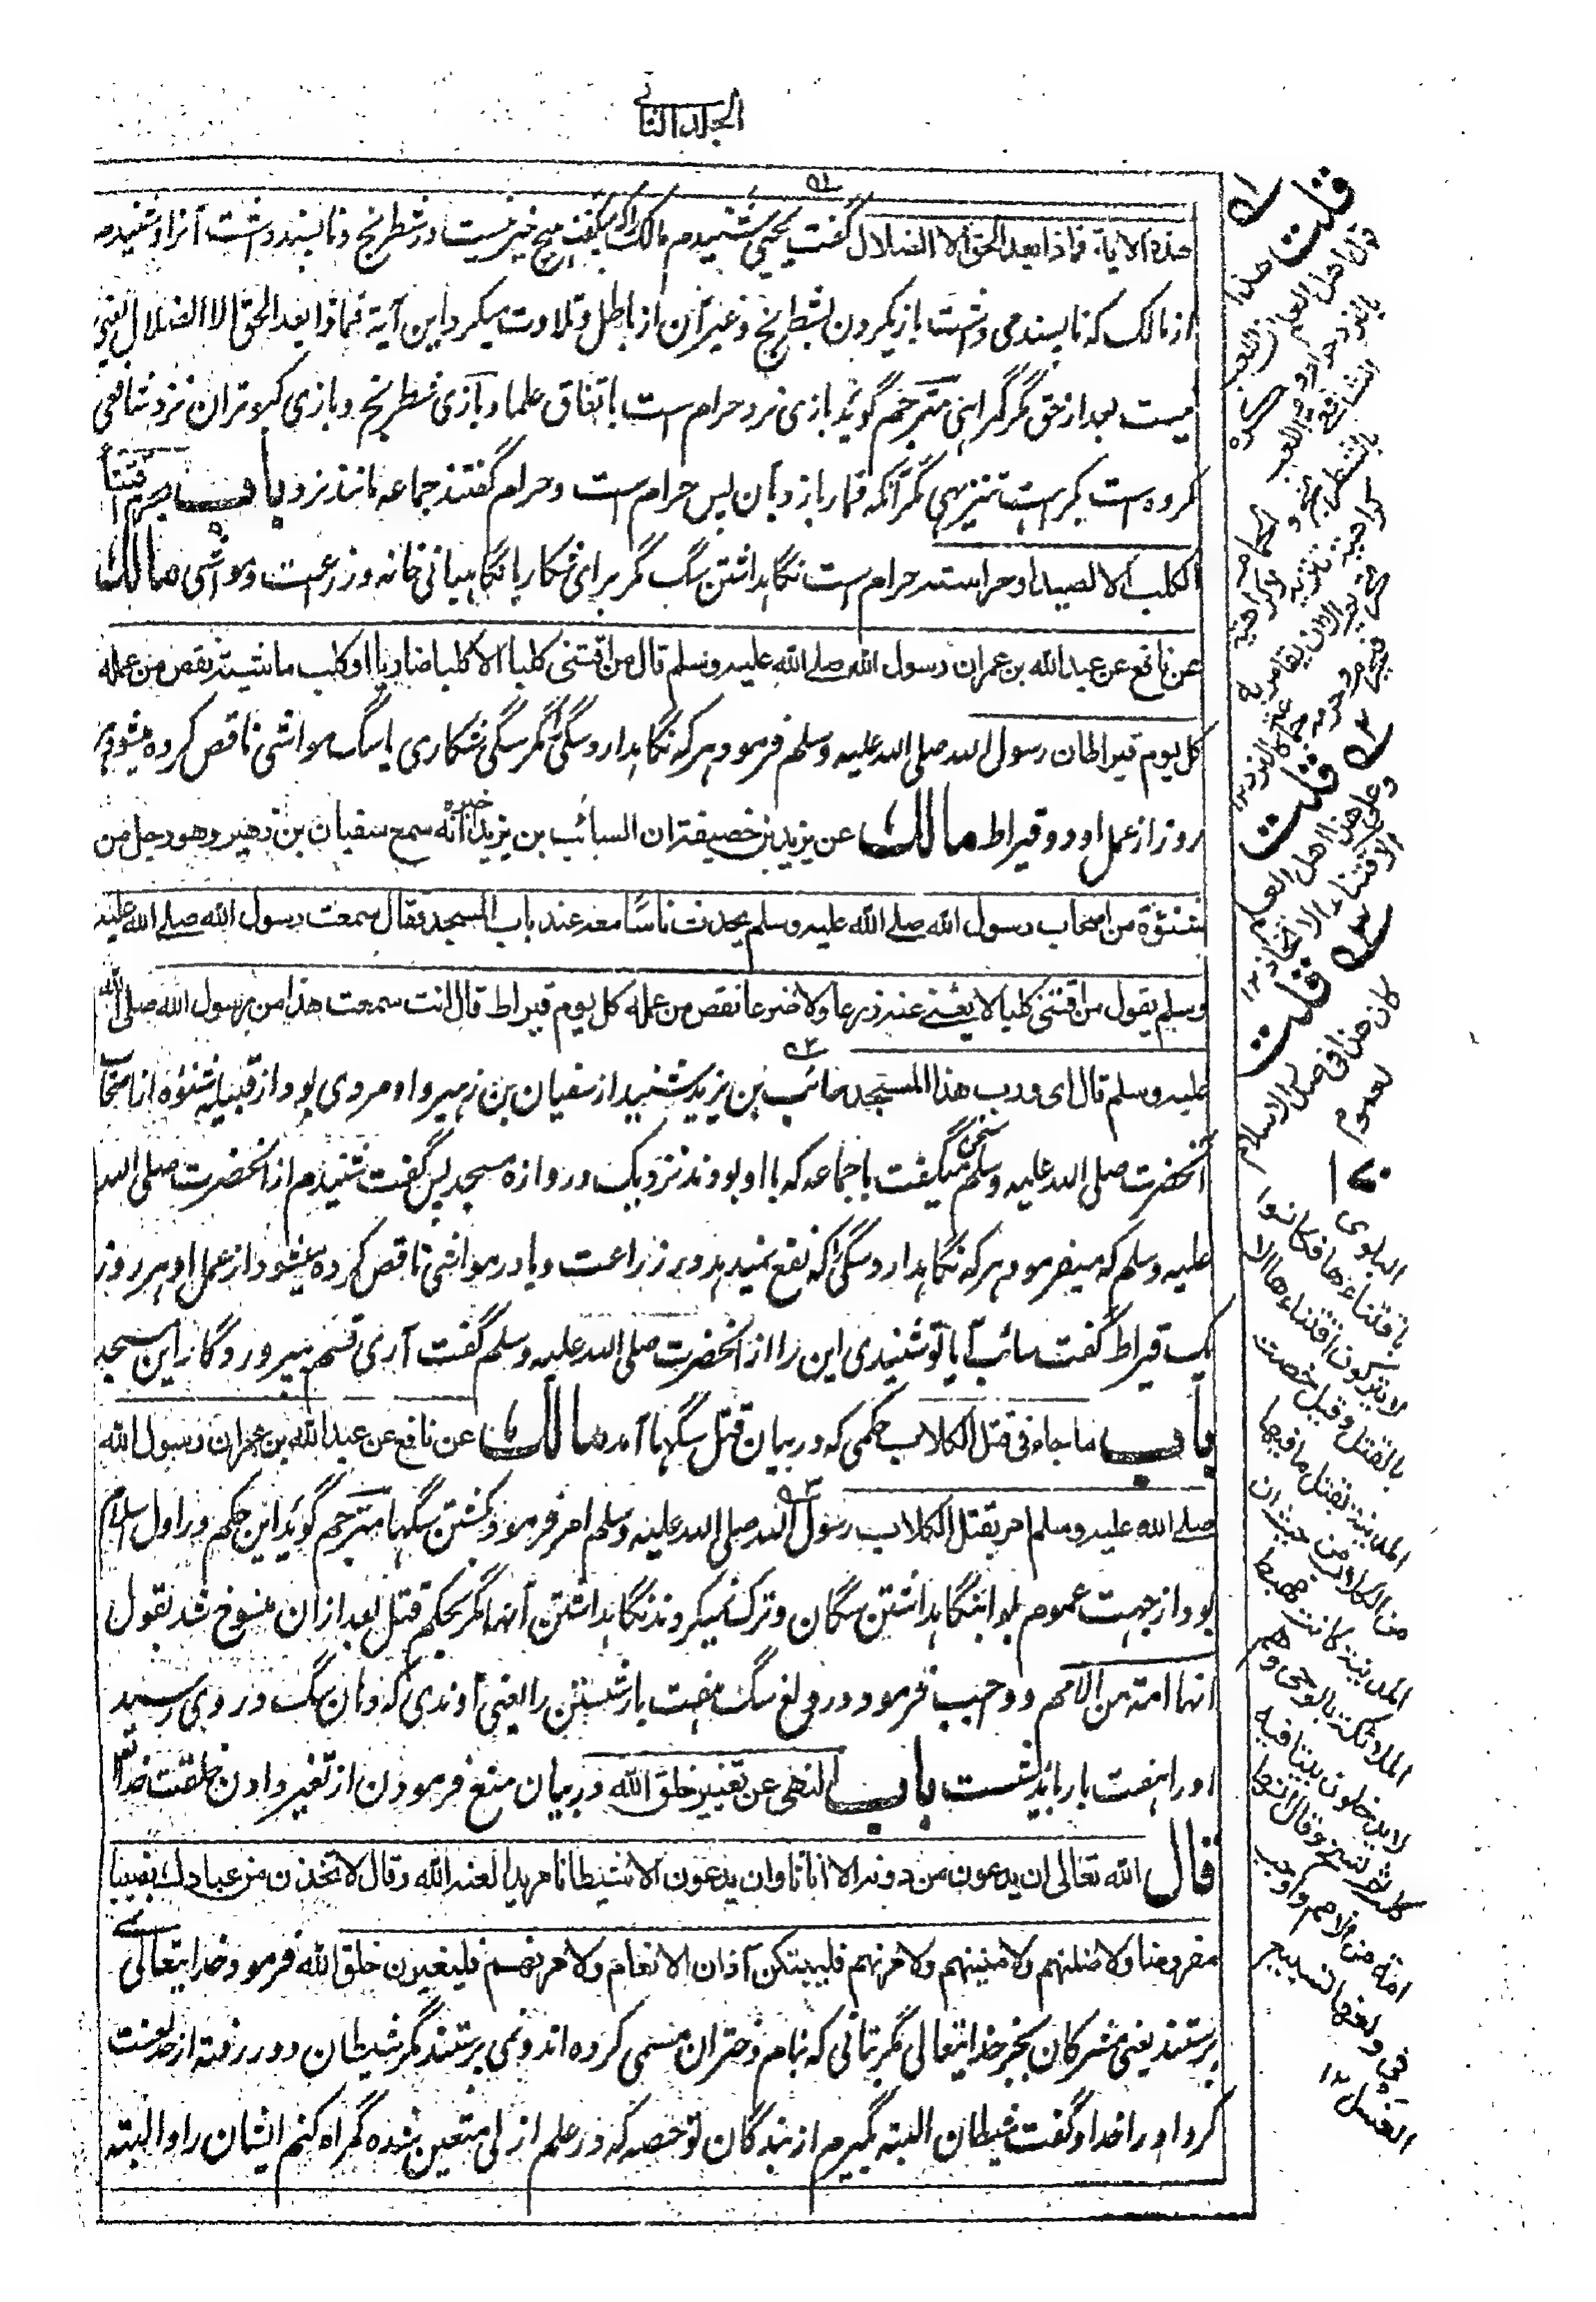 المجلد الثانی
هذه الاية فماذا بعد الحق الا الضلال گفت یحیی شنیدم مالک را که میگفت هیچ خیر نیست در شطرنج و ناپسند داشت آنرا و شنیدم
از مالک که ناپسند می داشت بازیکردن بشطرنج و غیر آن از باطل و تلاوت میکرد این آیة فماذا بعد الحق الا الضلال یعنی
نیست بعد از حق مگر گمراهی مترجم گوید بازی نرد حرام ست باتفاق علما و بازی شطرنج و بازی کبوتران نزد شافعی
مکروه ست بکراهت تنزیهی مگر آنکه قمار بازد بآن پس حرام ست و حرام گفتند جماعه مانند نرد باب يحرم اقتناء
الكلب الا لصيد او حراسة حرام ست نگاهداشتن سگ مگر برای شکار یا نگاهبانی خانه و زراعت و مواشی مالك
عن نافع عن عبد الله بن عمر ان رسول الله صلے الله عليه وسلم قال من اقتنى كلبا الا كلبا ضاريا او كلب ماشية نقص من عمله
كل يوم قيراطان رسول الله صلی الله علیه وسلم فرمود هر که نگاهدارد سگی را مگر سگی شکاری یا سگ مواشی ناقص کرده میشود هر
روز از عمل او دو قیراط مالك عن يزيد بن خصيفة ان السائب بن يزيد اخبره انه سمع سفيان بن زهير وهو رجل من
شنؤة من اصحاب رسول الله صلے الله عليه وسلم يحدث ناسًا معه عند باب المسجد فقال سمعت رسول الله صلے الله عليه
وسلم يقول من اقتنى كلبا لا يغنے عنه زرعا ولا ضرعا نقص من عمله كل يوم قيراط قال انت سمعت هذا من رسول الله صلی الله
عليه وسلم قال اى ورب هذا المسجد سائب بن یزید شنید از سفیان بن زهیر و او مردی بود از قبیله شنؤه از اصحاب
آنحضرت صلی الله علیه وسلم سخن میگفت با جماعه که با او بودند نزدیک دروازه مسجد پس گفت شنیدم از آنحضرت صلی الله
علیه وسلم که میفرمود هر که نگاهدارد سگی را که نفع نمیدهد وبرا در زراعت و یا در مواشی ناقص کرده میشود از عمل او هر روز
یک قیراط گفت سائب آیا تو شنیدی این را از آنحضرت صلی الله علیه وسلم گفت آری قسم بپروردگار این مسجد
باب ما جاء فى قتل الكلاب حکمی که در بیان قتل سگها آمد مالك عن نافع عن عبد الله بن عمر ان رسول الله
صلے الله عليه وسلم امر بقتل الكلاب رسول الله صلی الله علیه وسلم امر فرمود بکشتن سگها مترجم گوید این حکم در اول اسلام
بود از جهت عموم بلوا بنگاهداشتن سگان و ترک نمیکردند نگاهداشتن آنها مگر بحکم قتل بعد ازان منسوخ شد بقول
انها امة من الامم و واجب فرمود در ولغ سگ هفت بار شستن را یعنی آوندی که دهان سگ در وی رسید
اورا هفت بار باید شست باب النهى عن تغيير خلق الله در بیان منع فرمودن از تغیر دادن خلقت خدا
قال الله تعالى ان يدعون من دونه الا اناثا وان يدعون الا شيطانا مريدا لعنه الله وقال لاتخذن من عبادك نصيبا
مفروضا ولاضلنهم ولامنينهم ولامرنهم فليبتكن آذان الانعام ولامرنهم فليغيرن خلق الله فرمود خدایتعالی نمی
پرستند یعنی مشرکان بجز خدایتعالی مگر بتانی که بنام دختران مسمی کرده اند و نمی پرستند مگر شیطان دور رفته از حد لعنت
کرد او را خدا و گفت شیطان البته بگیرم از بندگان تو حصه که در علم ازلی متعین شده گمراه کنم ایشان را و البته
قلت
هذا
من اهل العلم ان اللعب
بالنرد حرام
الشافعية اللعب
بالشطرنج و الحمام مكروه
كراهية تنزيه
الا ان يقامر به
فيحرم وحرمه جماعة كالنرد
قلت
وعلى هذا اهل العلم
الاقتناء الاتخاذ
قلت
كان هذا فى صدر الاسلام
لعموم
البلوى
باقتنائها فكانوا
لا يتركون اقتناءها الا
بالقتل وقيل خصت
المدينة بقتل ما فيها
من الكلاب من حيث ان
المدينة كانت مهبط
الملائكة بالوحى وهم
لا يدخلون بيتا فيه
كلب ثم نسخ وقال انها
امة من الامم واوجب
فى ولغها تسبيع
الغسل ١٢